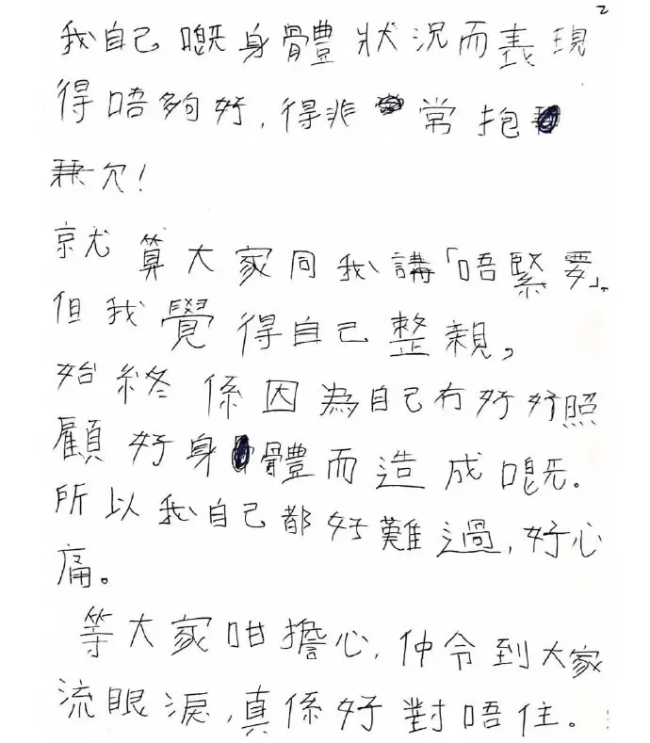 2
我自己嘅身體狀況而表現
得唔夠好,得非常抱
歉欠!
就算大家同我講「唔緊要」,
但我覺得自己整親,
始終係因為自己冇好好照
顧好身體而造成嘅.
所以我自己都好難過,好心
痛。
等大家咁擔心,仲令到大家
流眼淚,真係好對唔住。